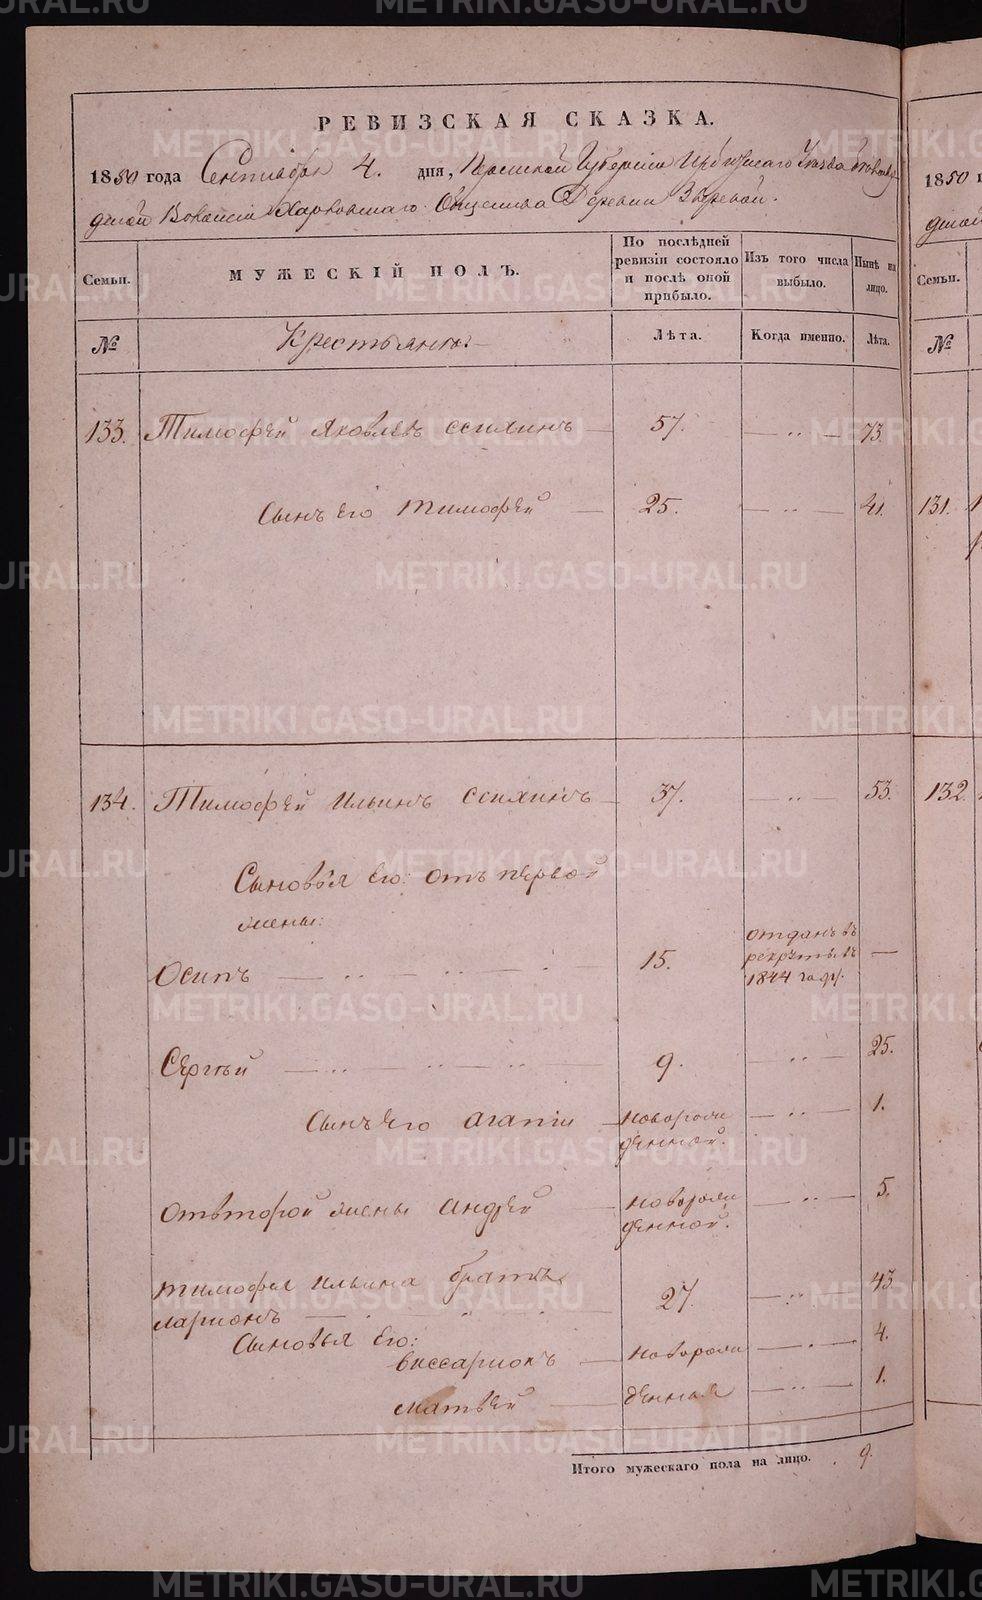 РЕВИЗСКАЯ СКАЗКА.
1850 года Сентября 4. дня, Пермской Губерніи Ирбитскаго Уезда
Харловскаго Общества Деревни Зыреной.
Семьи.
МУЖЕСКІЙ ПОЛЪ.
По послѣдней ревизіи состояло и послѣ оной прибыло.
Изъ того числа выбыло.
Нынѣ на лицо.
№
Крестьяна:
Лѣта.
Когда именно.
Лѣта.
133. Тимофей Яковлевъ ссихинъ — 57. — „ — 73.
Сынъ Его тимофей — 25. — „ — 41.
134. Тимофей ильинъ ссихинъ — 37. — „ — 53.
Сыновья Его: отъ первой
жены:
Осипъ — 15. отданъ въ рекруты въ 1844 году. —
Сергѣй — 9. — „ — 25.
Сынъ Его агапіи — новорожденной. — „ — 1.
отвторой жены андрей — новорожденной. — „ — 5.
тимофея ильина братъ
ларионъ — 27. — „ — 43.
Сыновья Его:
виссарионъ — новорож — „ — 4.
матвей — денная — „ — 1.
Итого мужескаго пола на лицо. 9.
1850 г
Семьи.
№
131.
132.
METRIKI.GASO-URAL.RU